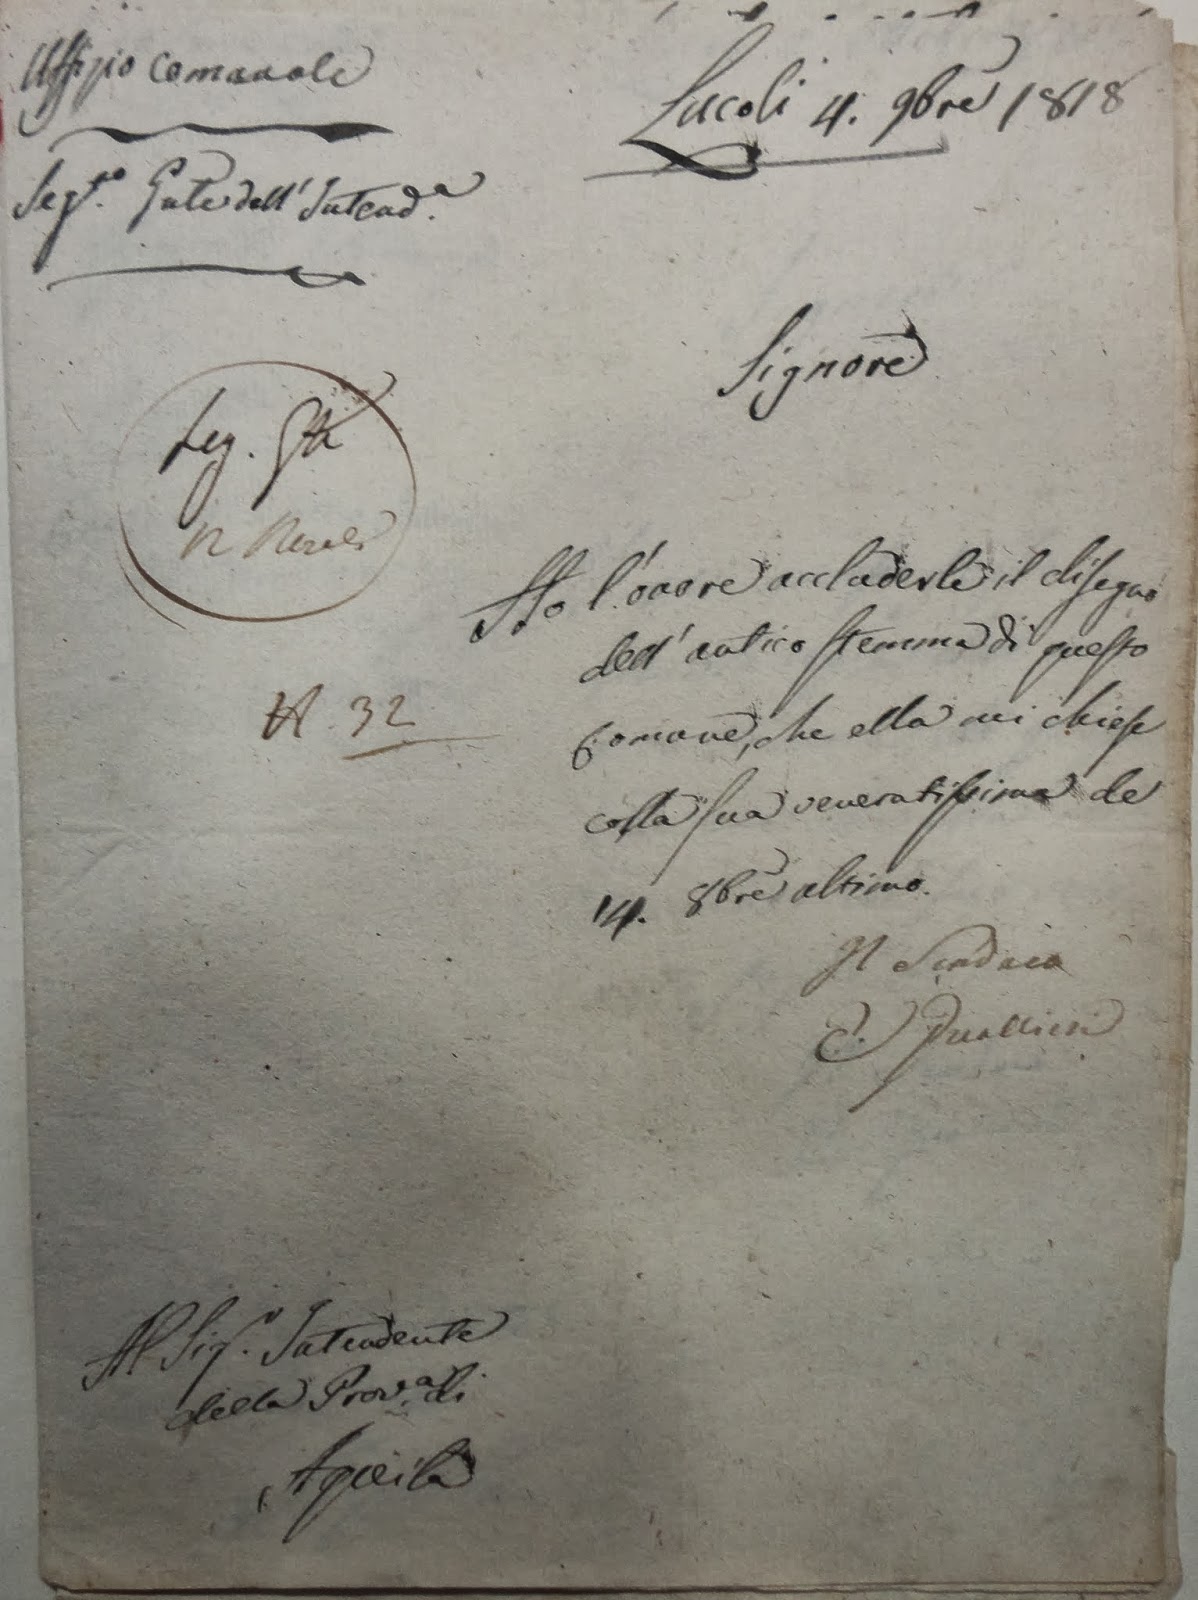 Uffizio comunale
Lucoli 4. 9bre 1818
Seg.to Gnle dell' Intend.a
Signore
Seg. Gle
N. 32
Ho l'onore accluderle il disegno
dell' antico stemma di questo
Comune, che ella mi chiese
colla sua veneratissima de
14. 8bre ultimo.
Il Sindaco
Al Sig.r Intendente
della Prov.a di
Aquila